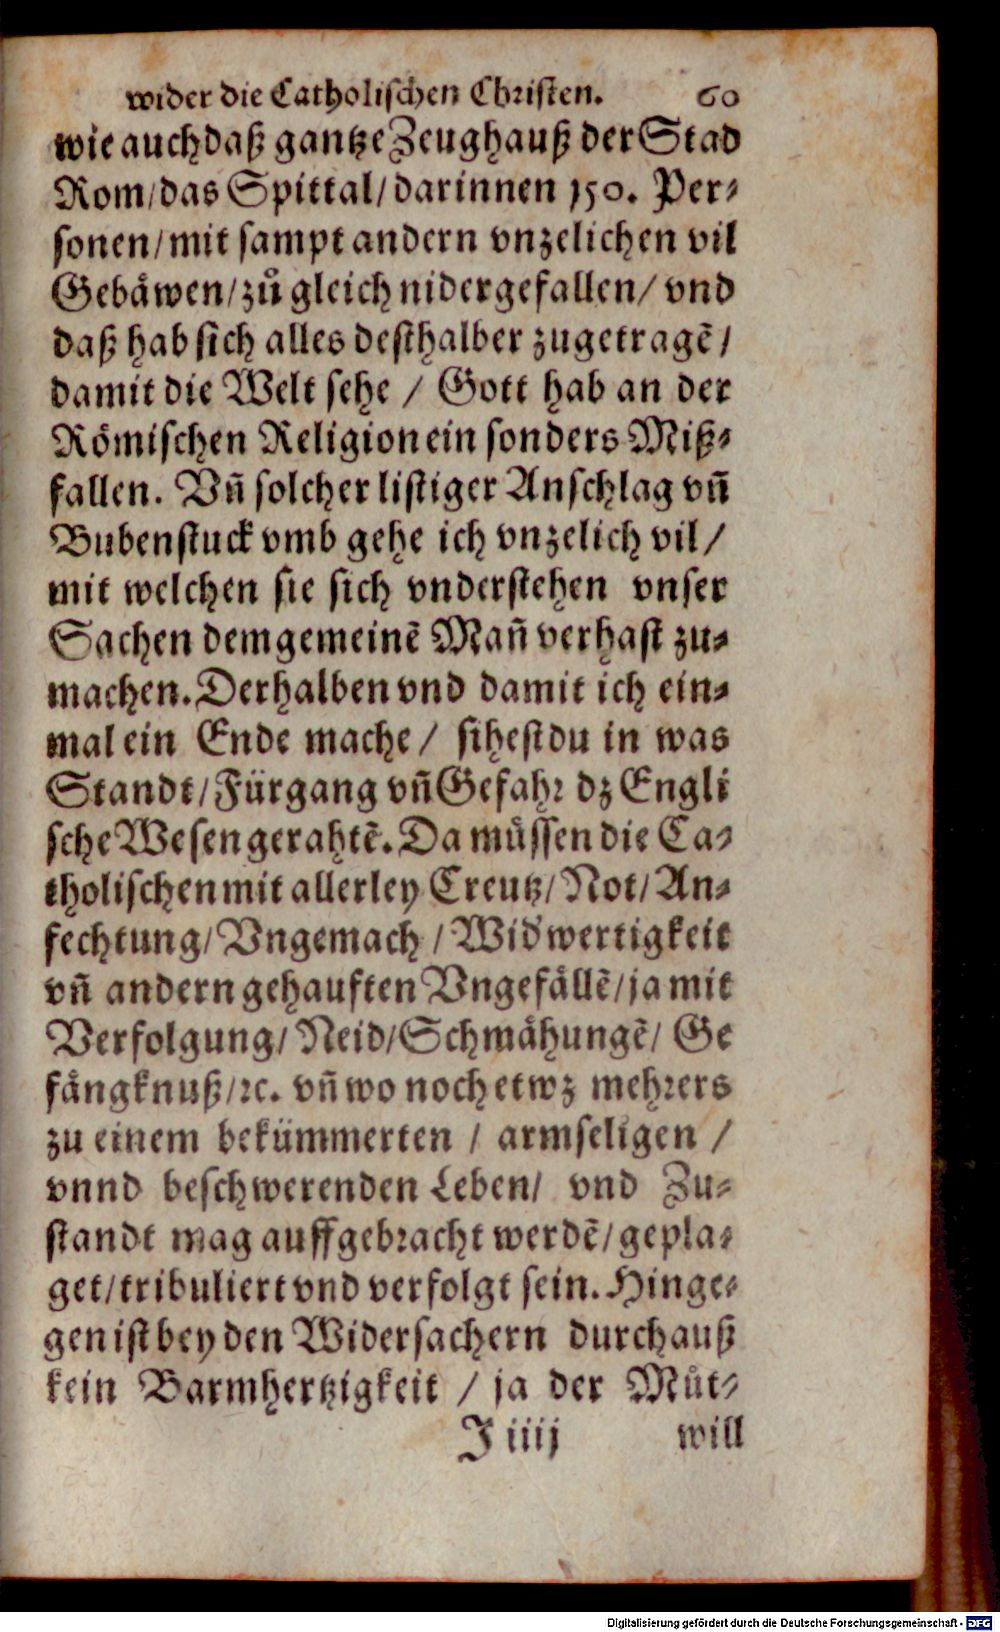 wider die Catholischen Christen. 60
wie auch daß gantze Zeughauß der Stad
Rom/das Spittal/darinnen 150. Per-
sonen/mit sampt andern vnzelichen vil
Gebåwen/zů gleich nidergefallen/ vnd
daß hab sich alles desthalber zugetragẽ/
damit die Welt sehe / Gott hab an der
Rômischen Religion ein sonders Miß-
fallen. Vñ solcher listiger Anschlag vñ
Bubenstuck vmb gehe ich vnzelich vil/
mit welchen sie sich vnderstehen vnser
Sachen dem gemeinẽ Mañ verhast zu-
machen. Derhalben vnd damit ich ein-
mal ein Ende mache / sihest du in was
Standt/Fürgang vñ Gefahr dz Engli
sche Wesen gerahtẽ. Da můssen die Ca-
tholischen mit allerley Creutz/Not/An-
fechtung/Vngemach / Widwertigkeit
vñ andern gehauften Vngefållẽ/ja mit
Verfolgung/Neid/Schmåhungẽ/ Ge
fångknuß/ꝛc. vñ wo noch etwz mehrers
zu einem bekümmerten / armseligen /
vnnd beschwerenden Leben/ vnd Zu-
standt mag auffgebracht werdẽ/gepla-
get/tribuliert vnd verfolgt sein. Hinge-
gen ist bey den Widersachern durchauß
kein Barmhertzigkeit / ja der Můt-
J iiij will
Digitalisierung gefördert durch die Deutsche Forschungsgemeinschaft - DFG